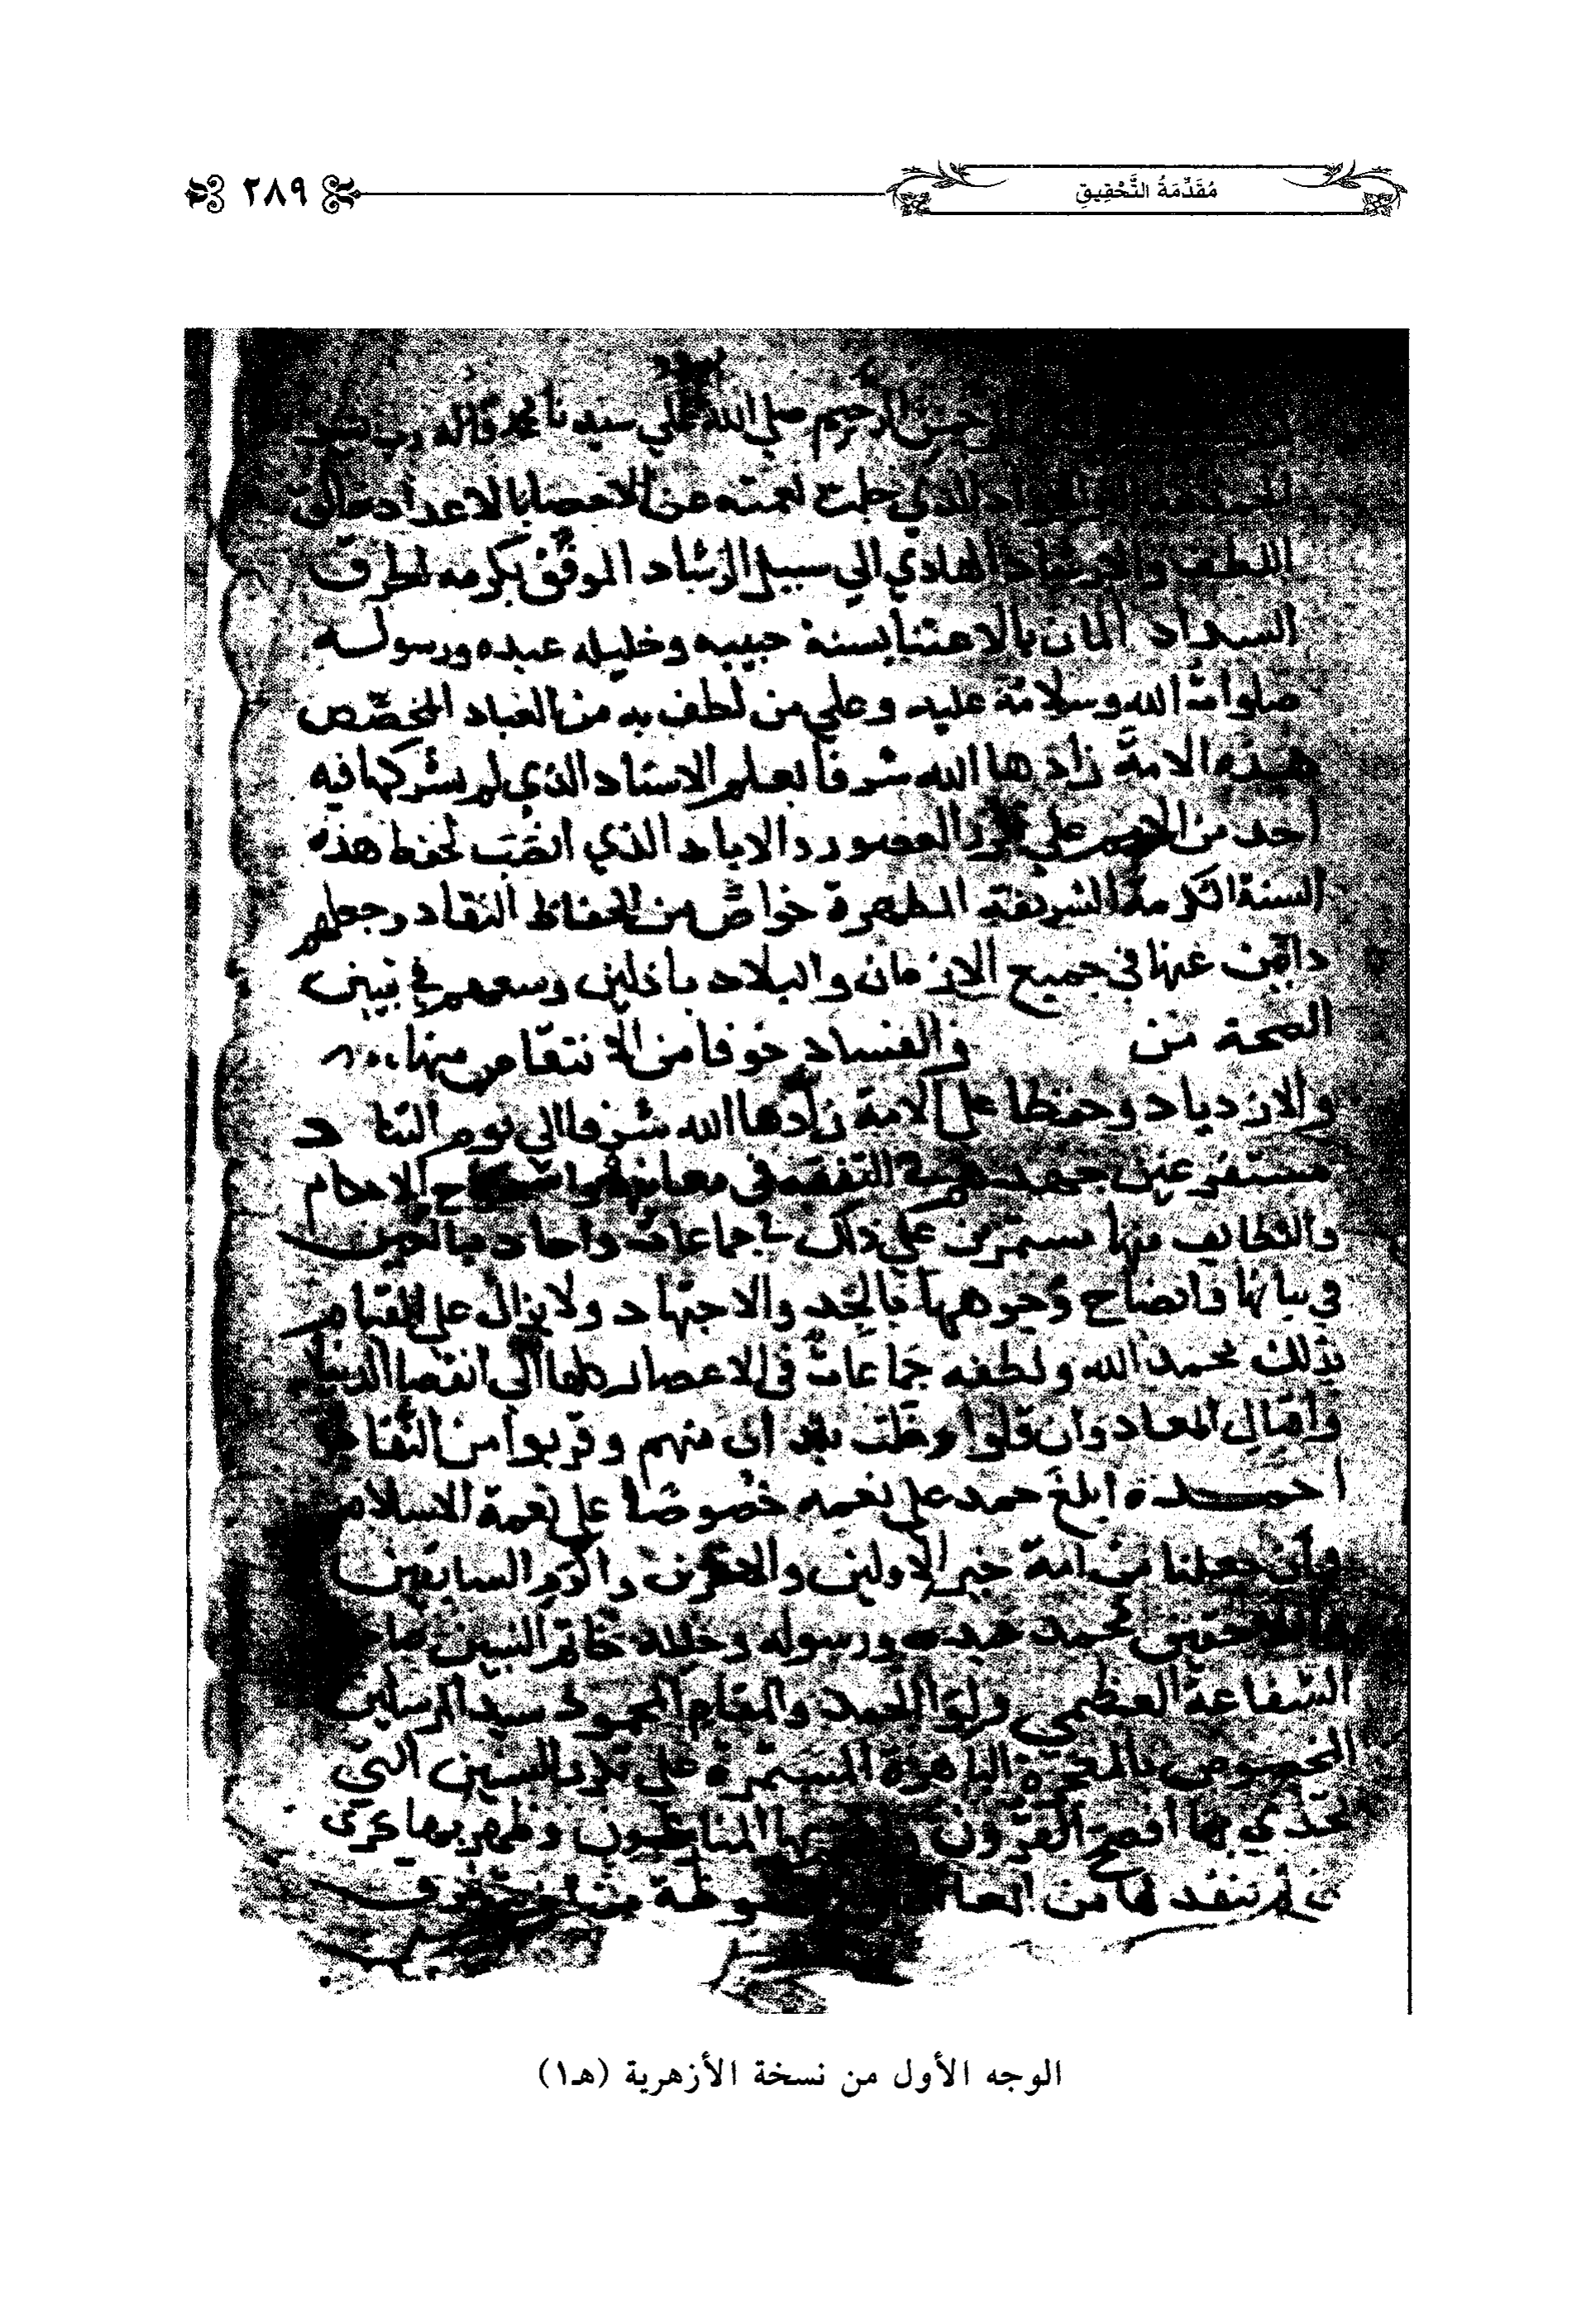 مُقَدِّمَةُ التَّحْقِيقِ
٢٨٩
الرحيم صلي الله علي سيدنا محمد واله رب
الذي جلت نعمته عن الاحصا بالاعداد خالق
اللطف والارشاد الهادي الي سبيل الرشاد الموفق بكرمه لطرق
السداد المان بالاعتنا بسنة حبيبه وخليله عبده ورسوله
صلوات الله وسلامة عليه وعلي من لطف به من العباد المخصّص
هذه الامة زادها الله شرفا بعلم الاسناد الذي لم يشركها فيه
احد من الامم علي العصور والاباد الذي انصَبَ لحفظ هذه
السنة المكرمة الشريفة المطهرة خواصّ من الحفاظ النقاد وجعلهم
دابين عنها في جميع الازمان والبلاد باذلين وسعهم في تبيين
الصحة من والفساد خوفا من الانتقاص منها
والازدياد وحفظا علي الامة زادها الله شرفا الي يوم التناد
مستفرغين جهدهم في التفقه في معانيها الاحكام
واللطايف منها مستمرين علي ذلك في جماعات واحاد مبالغين
في بيانها وايضاح وجوهها بالجد والاجتهاد ولا يزال علي القيام
بذلك بحمد الله ولطفه جماعات في الاعصار كلها الي انقضا الدنيا
واقبال المعاد وان قلوا منهم وقربوا من النفاد
احمده ابلغ حمد علي نعمه خصوصا علي نعمة الاسلام
وان جعلنا من امة خير الاولين والاخرين واكرم السابقين
واللاحقين محمد عبده ورسوله وخليله خاتم النبيين صاحب
الشفاعة العظمي ولوا الحمد والمقام المحمود سيد المرسلين
المخصوص بالمعجزة الباهرة المستمرة علي تكرر السنين التي
تحدي بها افصح القرون بها المنازعون وظهر بها خزي
من لم ينقد لها من
الوجه الأول من نسخة الأزهرية (هـ١)